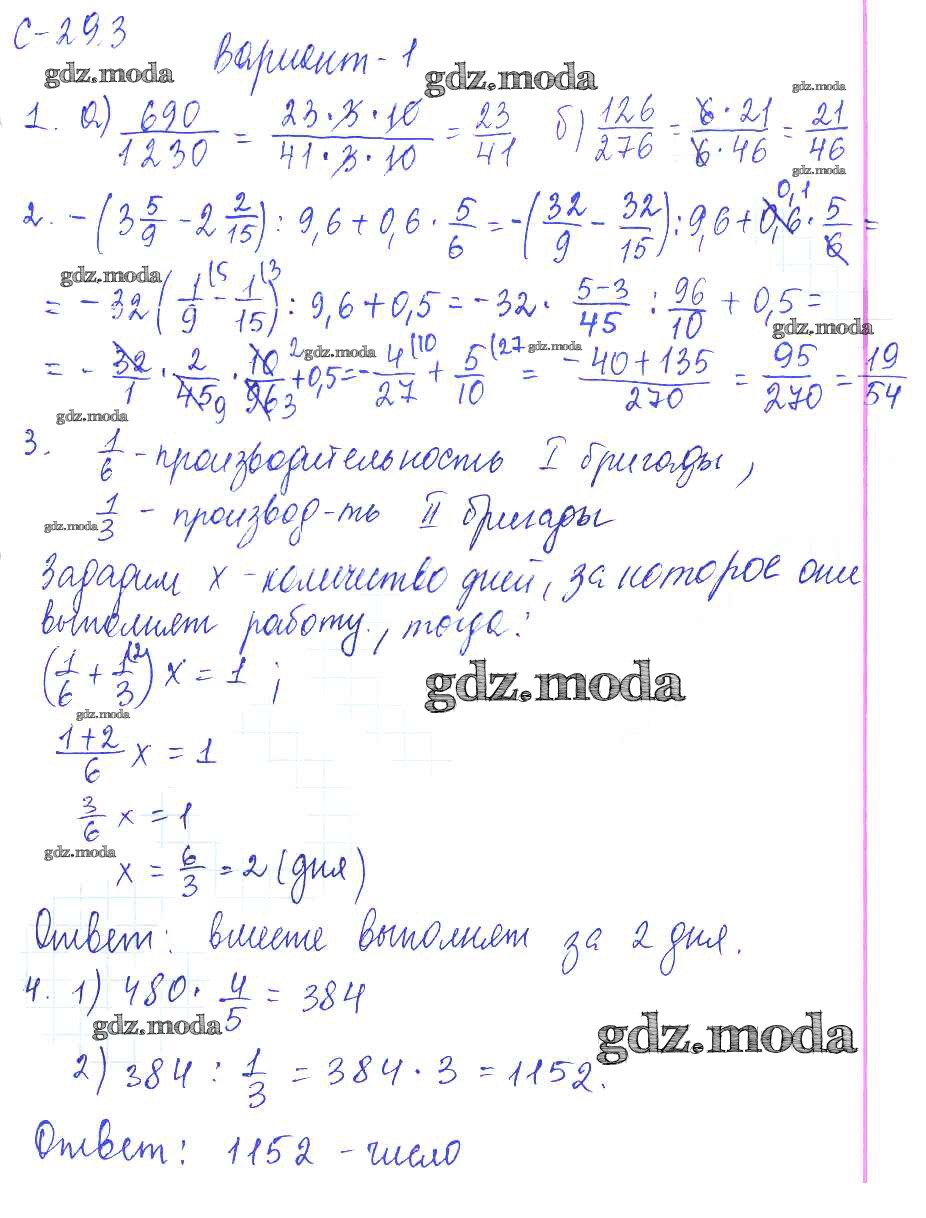 С-29.3
Вариант-1
gdz.moda gdz.moda gdz.moda
1. а) 690/1230 = 23·3·10/41·3·10 = 23/41 б) 126/276 = 6·21/6·46 = 21/46
gdz.moda
2. -(3 5/9 - 2 2/15) : 9,6 + 0,6 · 5/6 = -(32/9 - 32/15) : 9,6 + 0,6 0,1 · 5/6 =
gdz.moda
= -32 (1/9 (5 - 1/15 (3) : 9,6 + 0,5 = -32 · 5-3/45 : 96/10 + 0,5 =
gdz.moda
= - 32/1 · 2/45 9 · 10 2/96 3 + 0,5 = - 4/27 (10 + 5/10 (27 = -40+135/270 = 95/270 = 19/54
gdz.moda gdz.moda
gdz.moda
3. 1/6 - производительность I бригады,
1/3 - производ-ть II бригады
gdz.moda
Зададим х - количество дней, за которое они
выполнят работу, тогда:
(1/6 + 1/3 (2) х = 1 ;
gdz.moda
gdz.moda
1+2/6 х = 1
3/6 х = 1
gdz.moda
х = 6/3 = 2 (дня)
Ответ: вместе выполнят за 2 дня.
4. 1) 480 · 4/5 = 384
gdz.moda gdz.moda
2) 384 : 1/3 = 384 · 3 = 1152.
Ответ: 1152 - число